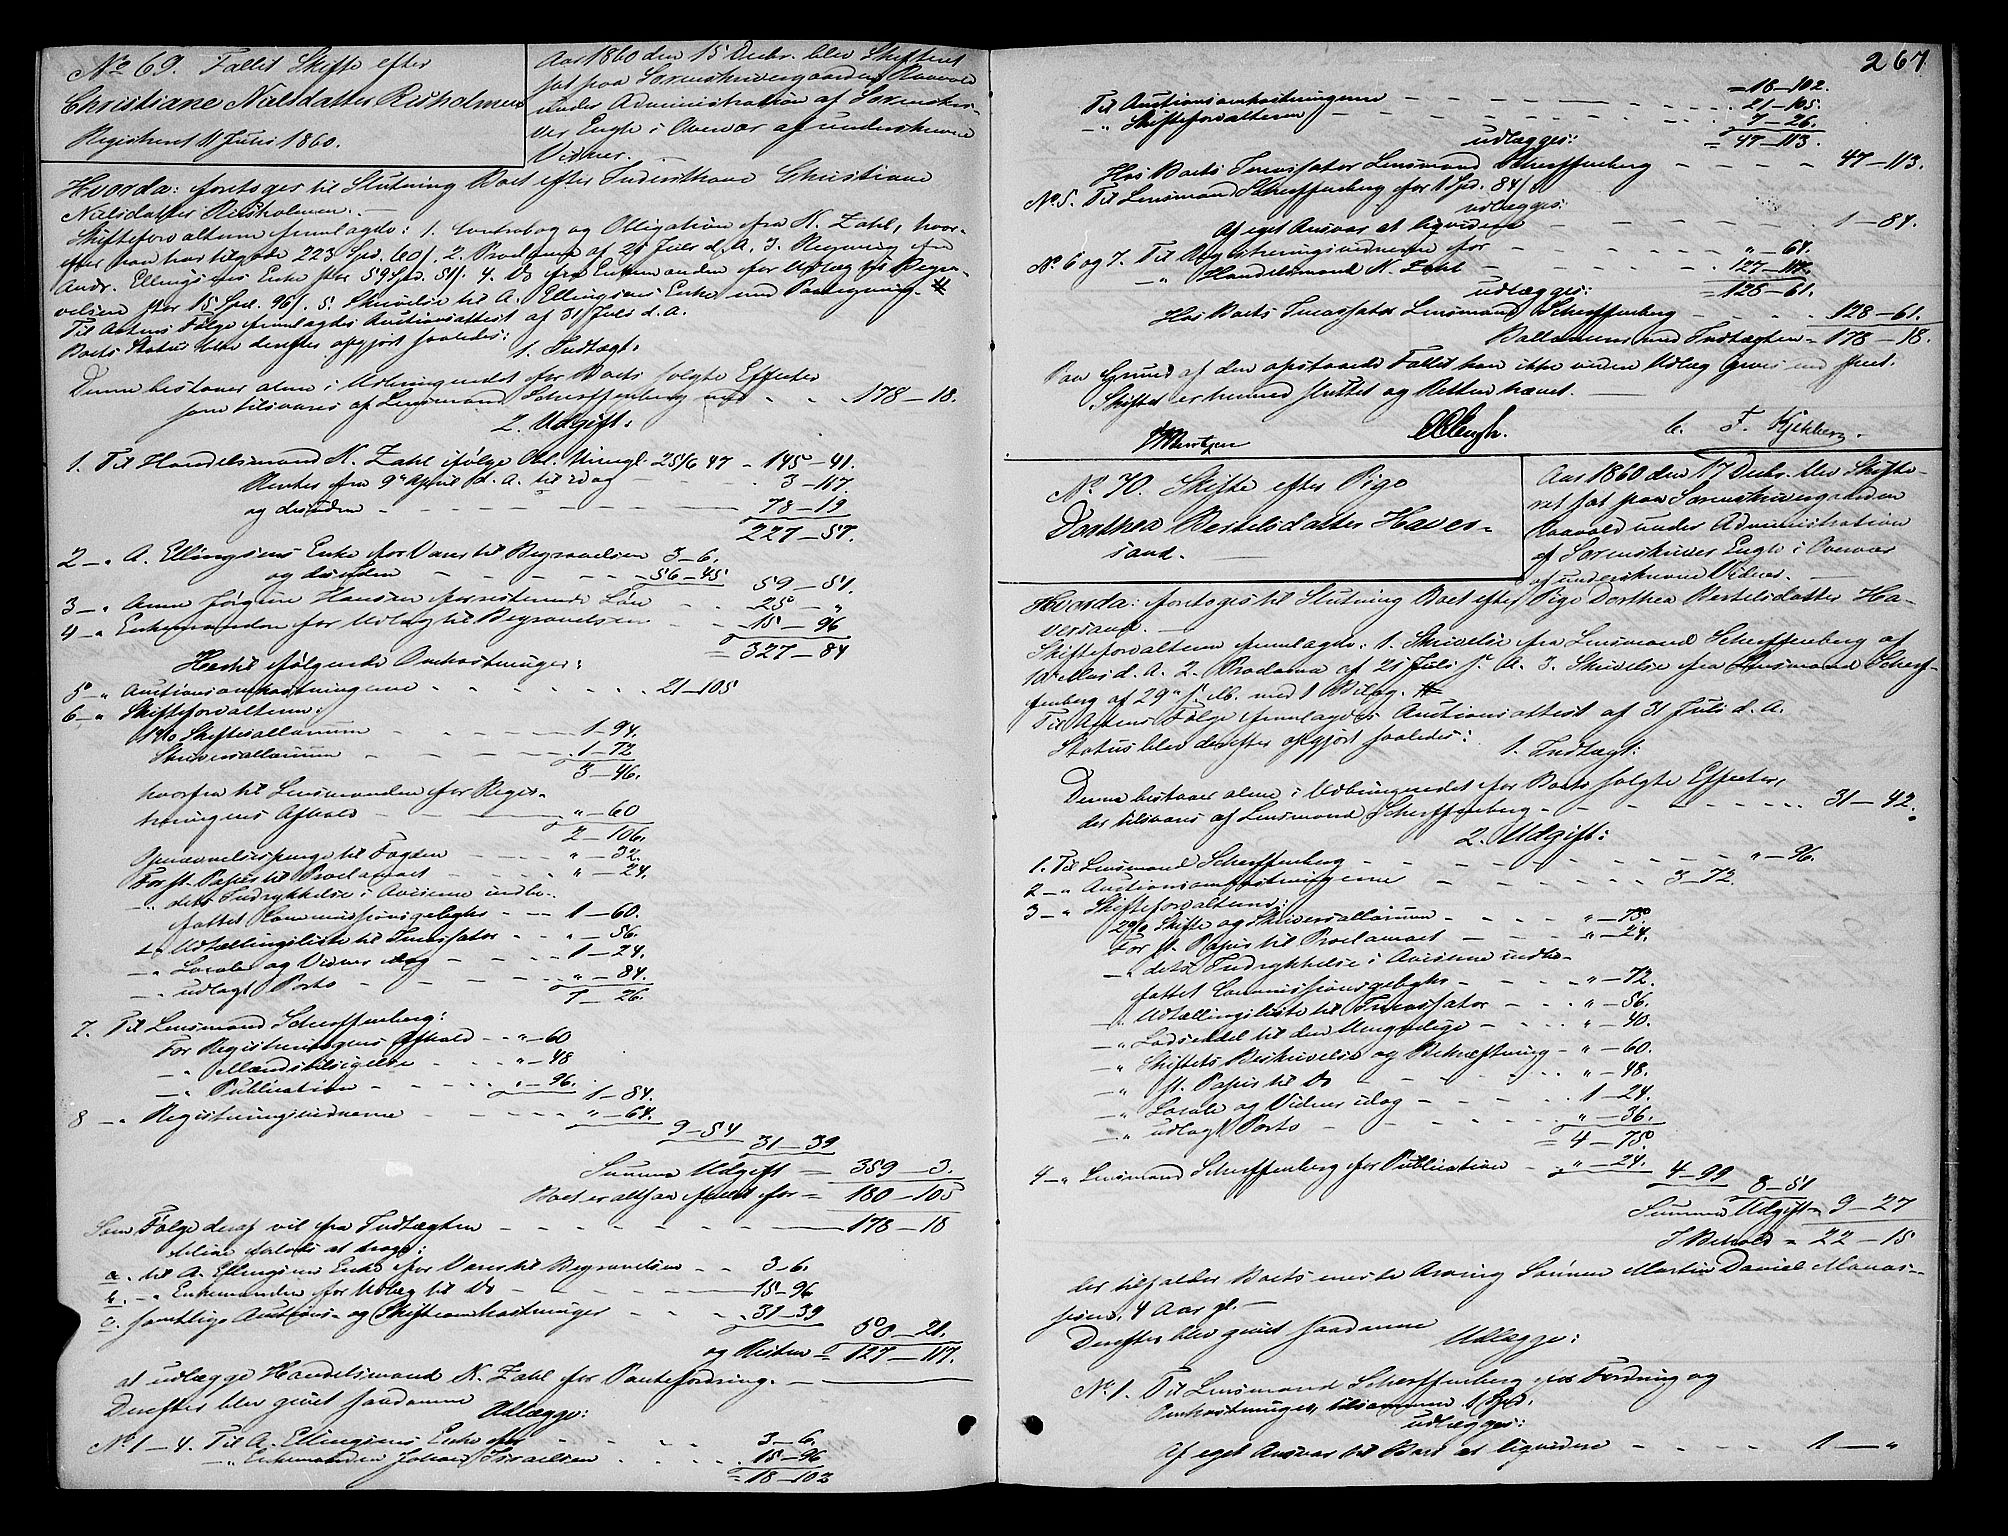 No 69. Fallit Skifte efter
Christiane Nielsdatter Risholmen
Registreret 11 Juli 1860.
Aar 1860 den 15 Decbr. blev Skifteret
sat paa Sorenskrivergaarden Raavold
under Administration af Sorenskri-
ver Engh i Overvær af underskrevne
Vidner.
Hvorda: foretoges til Slutning Boet efter Inderskone Christiane
Nielsdatter Risholmen.
Skifteforvalteren fremlagde: 1. Contrabog og Obligation fra N. Zahl, hvor-
efter han har tilgode 223 Spd. 60 s. 2. Proclama af 21 Juli d. A. 3. Regning fra
Andr. Ellingsens Enke stor 59 Spd. 51 s. 4. Do fra Enkemanden for Udlæg til Begra-
velsen stor 15 Spd. 96 s. 5. Skrivelse til A. Ellingsens Enke med Paategning. #
Til Actens Følge fremlagdes Auctionsattest af 31 Juli d. A.
Boets Status blev derefter opgjort saaledes:
1. Indtægt:
Denne bestaaer alene i Udbringendet for Boets solgte Effecter
som tilsvares af Lensmand Scherffenberg med - - 178 - 18.
2. Udgift:
1. Til Handelsmand N. Zahl ifølge Obl. thingl. 25/6 47 - 145 - 41.
Renter fra 9de April d. A. til idag - - 3 - 117.
og desuden - - - 78 - 19
227 - 57.
2 - " A. Ellingsens Enke for Varer til Begravelsen 3 - 6.
og desuden - - - 56 - 45 59 - 51.
3 - " Anne Jørgine Hansen for resterende Løn - - 25 - "
4 - " Enkemanden for Udlæg til Begravelsen - - 15 - 96
= 327 - 84
Hertil følgende Omkostninger:
5 - " Auctionsomkostningerne - - - 21 - 105
6 - " Skifteforvalteren:
1 % Skiftesallarium - - 1 - 94.
Skriversallarium - - 1 - 72
3 - 46.
hvorfra til Lensmanden for Regis-
treringens Afhold - - " - 60
2 - 106.
Sportelpenge til Fogden - - " - 32.
For st. Papir til Proclamaet - - " - 24.
- " dets Indrykkelse i Aviserne indbe-
fattet Commissionsgebyhr - - 1 - 60.
- " Udtællingsliste til Incassator - - " - 56.
- " Locale og Vidner idag - - 1 - 24.
- " udlagt Porto - - " - 84.
7 - 26.
7. Til Lensmand Scherffenberg:
For Registreringens Afhold - - " - 60
- " Mændstilsigelse - - " - 48
- " Publication - - " - 96. 1 - 84.
8 - " Registreringsvidnerne - - " - 64.
9 - 54 31 - 39
Summa Udgift = 359 - 3.
Boet er altsaa fallit for = 180 - 105
Som Følge deraf vil fra Indtægten - - - 178 - 18
blive forlods at drage:
a. til A. Ellingsens Enke for Varer til Begravelsen - - 3 - 6.
b. - " Enkemanden for Udlæg til Do - 15 - 96
c. samtlige Auctions- og Skifteomkostninger - - 31 - 39
50 - 21.
og Resten = 127 - 117.
at udlægge Handelsmand N. Zahl for Pantefordring.
Derefter blev givet saadanne
Udlægge:
No 1 - 4. Til A. Ellingsens Enke for - - 3 - 6.
- " Enkemanden Johan Israelsen - - 15 - 96
= 18 - 102
267
= 18 - 102.
Til Auctionsomkostningerne - - - 21 - 105.
- " Skifteforvalteren - - - 7 - 26.
udlægges: = 47 - 113.
Hos Boets Incassator Lensmand Scherffenberg - - - 47 - 113.
No 5. Til Lensmand Scherffenberg for 1 Spd. 84 s.
udlægges:
Af eget Ansvar at liqvidere - - - 1 - 84.
No 6 og 7. Til Registreringsvidnerne for - - " - 64.
- " Handelsmand N. Zahl - - 127 - 117.
udlægges: = 128 - 61.
Hos Boets Incassator Lensmand Scherffenberg - - 128 - 61.
Ballancerer med Indtægten = 178 - 18.
Paa Grund af den opstaaede Fallit kan ikke videre Udlæg gives end skeet.
Skiftet er hermed sluttet og Retten hævet.
Engh.
C. F. Kjelberg.
No 70. Skifte efter Pige
Dorthea Bertelsdatter Haver-
sand.
Aar 1860 den 17 Decbr. blev Skifte-
ret sat paa Sorenskrivergaarden
Raavold under Administration
af Sorenskriver Engh i Overvær
af underskrevne Vidner.
Hvorda: foretoges til Slutning Boet efter Pige Dorthea Bertelsdatter Ha-
versand.
Skifteforvalteren fremlagde: 1. Skrivelse fra Lensmand Scherffenberg af
10 Mai d. A. 2. Proclama af 21 Juli s. A. 3. Skrivelse fra Lensmand Scherf-
fenberg af 29de s. M. med 1 Bilag. #
Til Actens Følge fremlagdes Auctionsattest af 31 Juli d. A.
Status blev derefter opgjort saaledes:
1. Indtægt:
Denne bestaaer alene i Udbringendet for Boets solgte Effecter,
der tilsvares af Lensmand Scherffenberg - - - 31 - 42.
2. Udgift:
1. Til Lensmand Scherffenberg - - - " - 96.
2 - " Auctionsomkostningerne - - - 3 - 72.
3 - " Skifteforvalteren:
2 % Skifte og Skriversallarium - - " - 75.
For st. Papir til Proclamaet - - " - 24.
- " dets Indrykkelse i Aviserne indbe-
fattet Commissionsgebyhr - - " - 72.
- " Udtællingsliste til Incassator - - " - 56.
- " Lodseddel til den Umyndige - - " - 40.
- " Skiftets Beskrivelse og Bekræftning - " - 60.
- " st. Papir til Do - - " - 48.
- " Locale og Vidner idag - - 1 - 24.
- " udlagt Porto - - " - 36.
= 4 - 75
4 - " Lensmand Scherffenberg for Publication - " - 24. 4 - 99 8 - 51
Summa Udgift = 9 - 27
I Behold = 22 - 15
der tilfalder Boets eneste Arving Sønnen Martin Daniel Manas-
sesen, 4 Aar gl.
Derefter blev givet saadanne
Udlægge:
No 1. Til Lensmand Scherffenberg for Fordring og
Omkostninger, tilsammen 1 Spd.
udlægges:
Af eget Ansvar til Boet at liqvidere - - - 1 - "